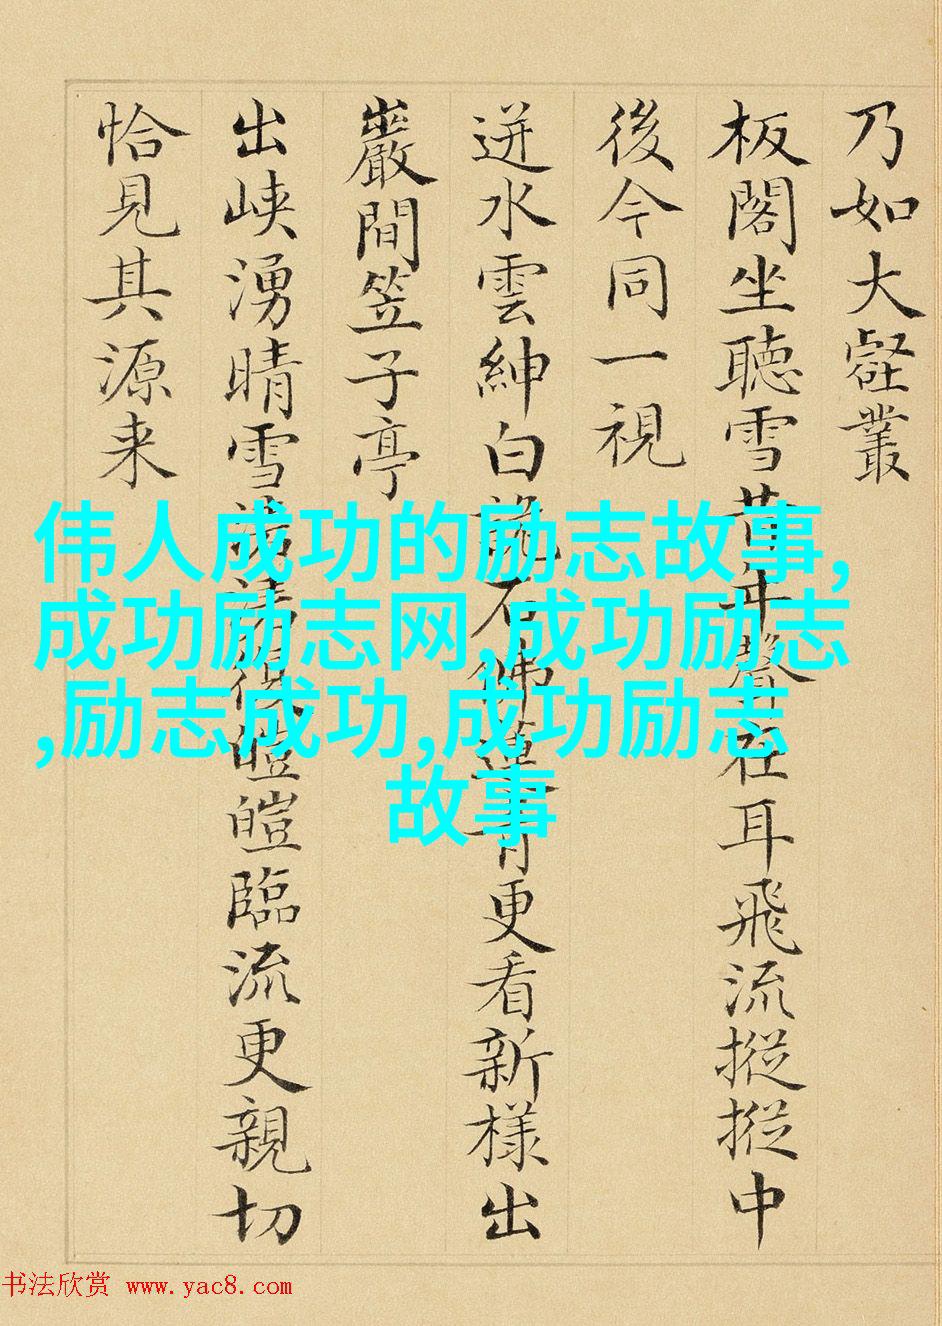 乃如大壑叢
板閣坐聽雪昔年聲在耳飛流摐摐中
後今同一視
迸水雲紳白詭石佛蓮青更看新樣出
巖間笠子亭
出峽湧晴雪皚皚臨流更親切
恰見其源来
伟人成功的励志故事,
成功励志网,成功励志
,励志成功,成功励志
故事
书法欣赏 www.yac8.com